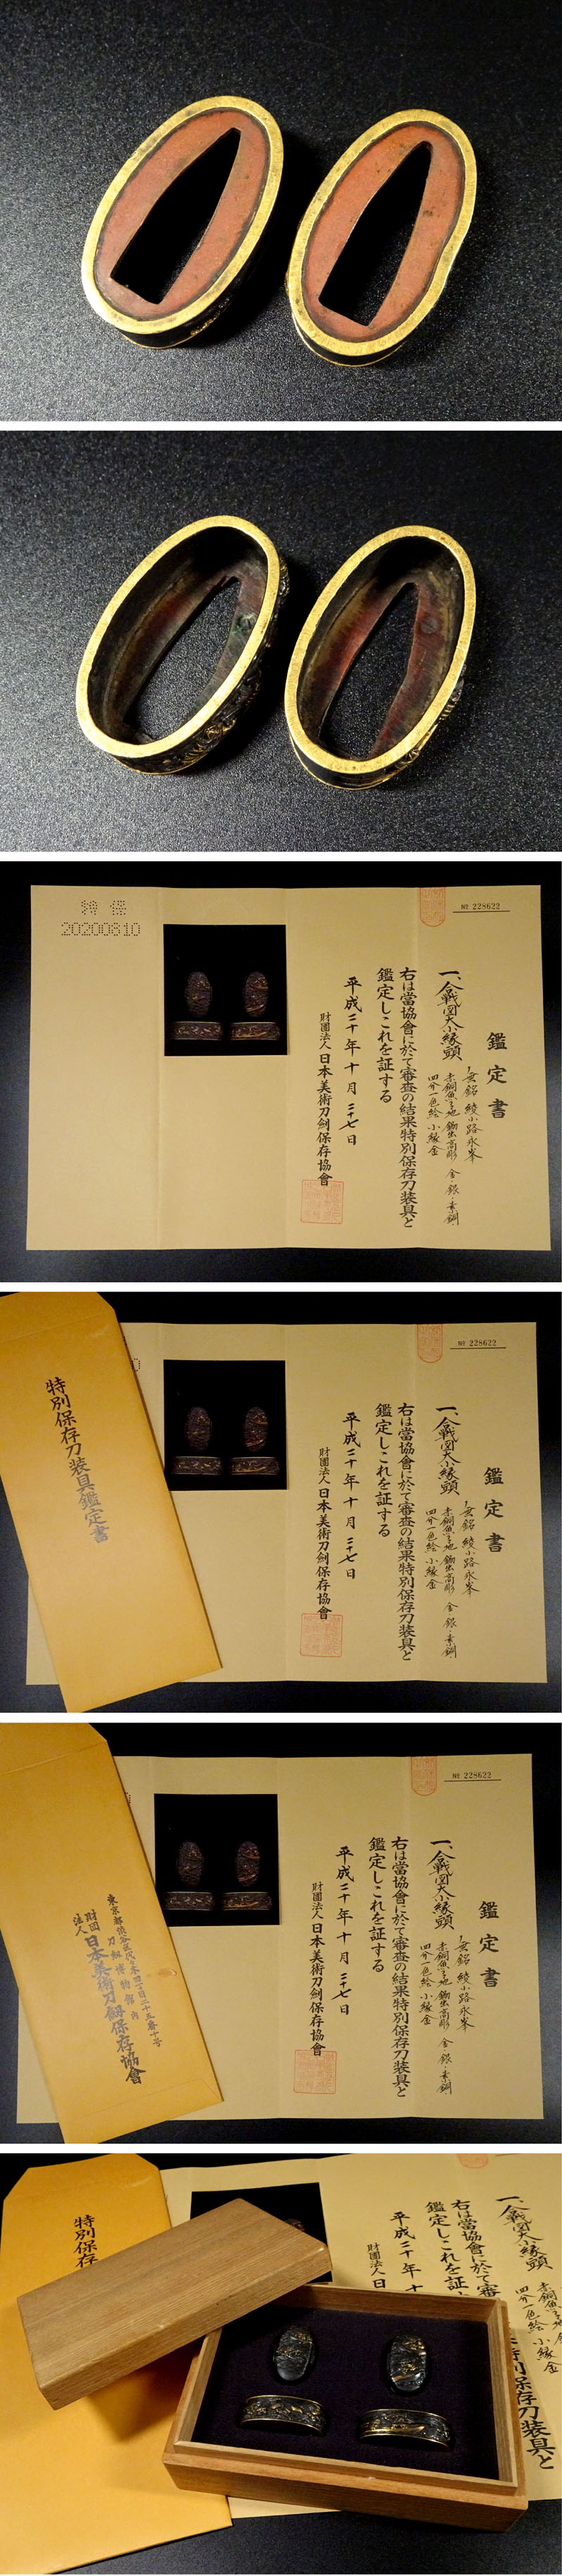 特保
20200810
№ 228622
鑑定書
一、合戦図大小縁頭
無銘 綾小路永峯
赤銅魚子地 鋤出高彫 金・銀・素銅
四分一色絵 小縁金
右は當協會に於て審査の結果特別保存刀装具と
鑑定しこれを証する
平成二十年十月二十七日
財團法人 日本美術刀剣保存協會
特別保存刀装具鑑定書
№ 228622
鑑定書
一、合戦図大小縁頭
無銘 綾小路永峯
赤銅魚子地 鋤出高彫 金・銀・素銅
四分一色絵 小縁金
右は當協會に於て審査の結果特別保存刀装具と
鑑定しこれを証する
平成二十年十月二十七日
財團法人 日本美術刀剣保存協會
№ 228622
鑑定書
一、合戦図大小縁頭
無銘 綾小路永峯
赤銅魚子地 鋤出高彫 金・銀・素銅
四分一色絵 小縁金
右は當協會に於て審査の結果特別保存刀装具と
鑑定しこれを証する
平成二十年十月二十七日
財團法人 日本美術刀剣保存協會
東京都渋谷区代々木四丁目二十五番十号
刀剣博物館内
財団法人 日本美術刀剣保存協會
特別保存
一、合戦図大小縁頭
赤銅魚子地
四分一色絵 小縁金
右は當協會に於て審
刀装具と
鑑定しこれを証
平成二十
財團法人